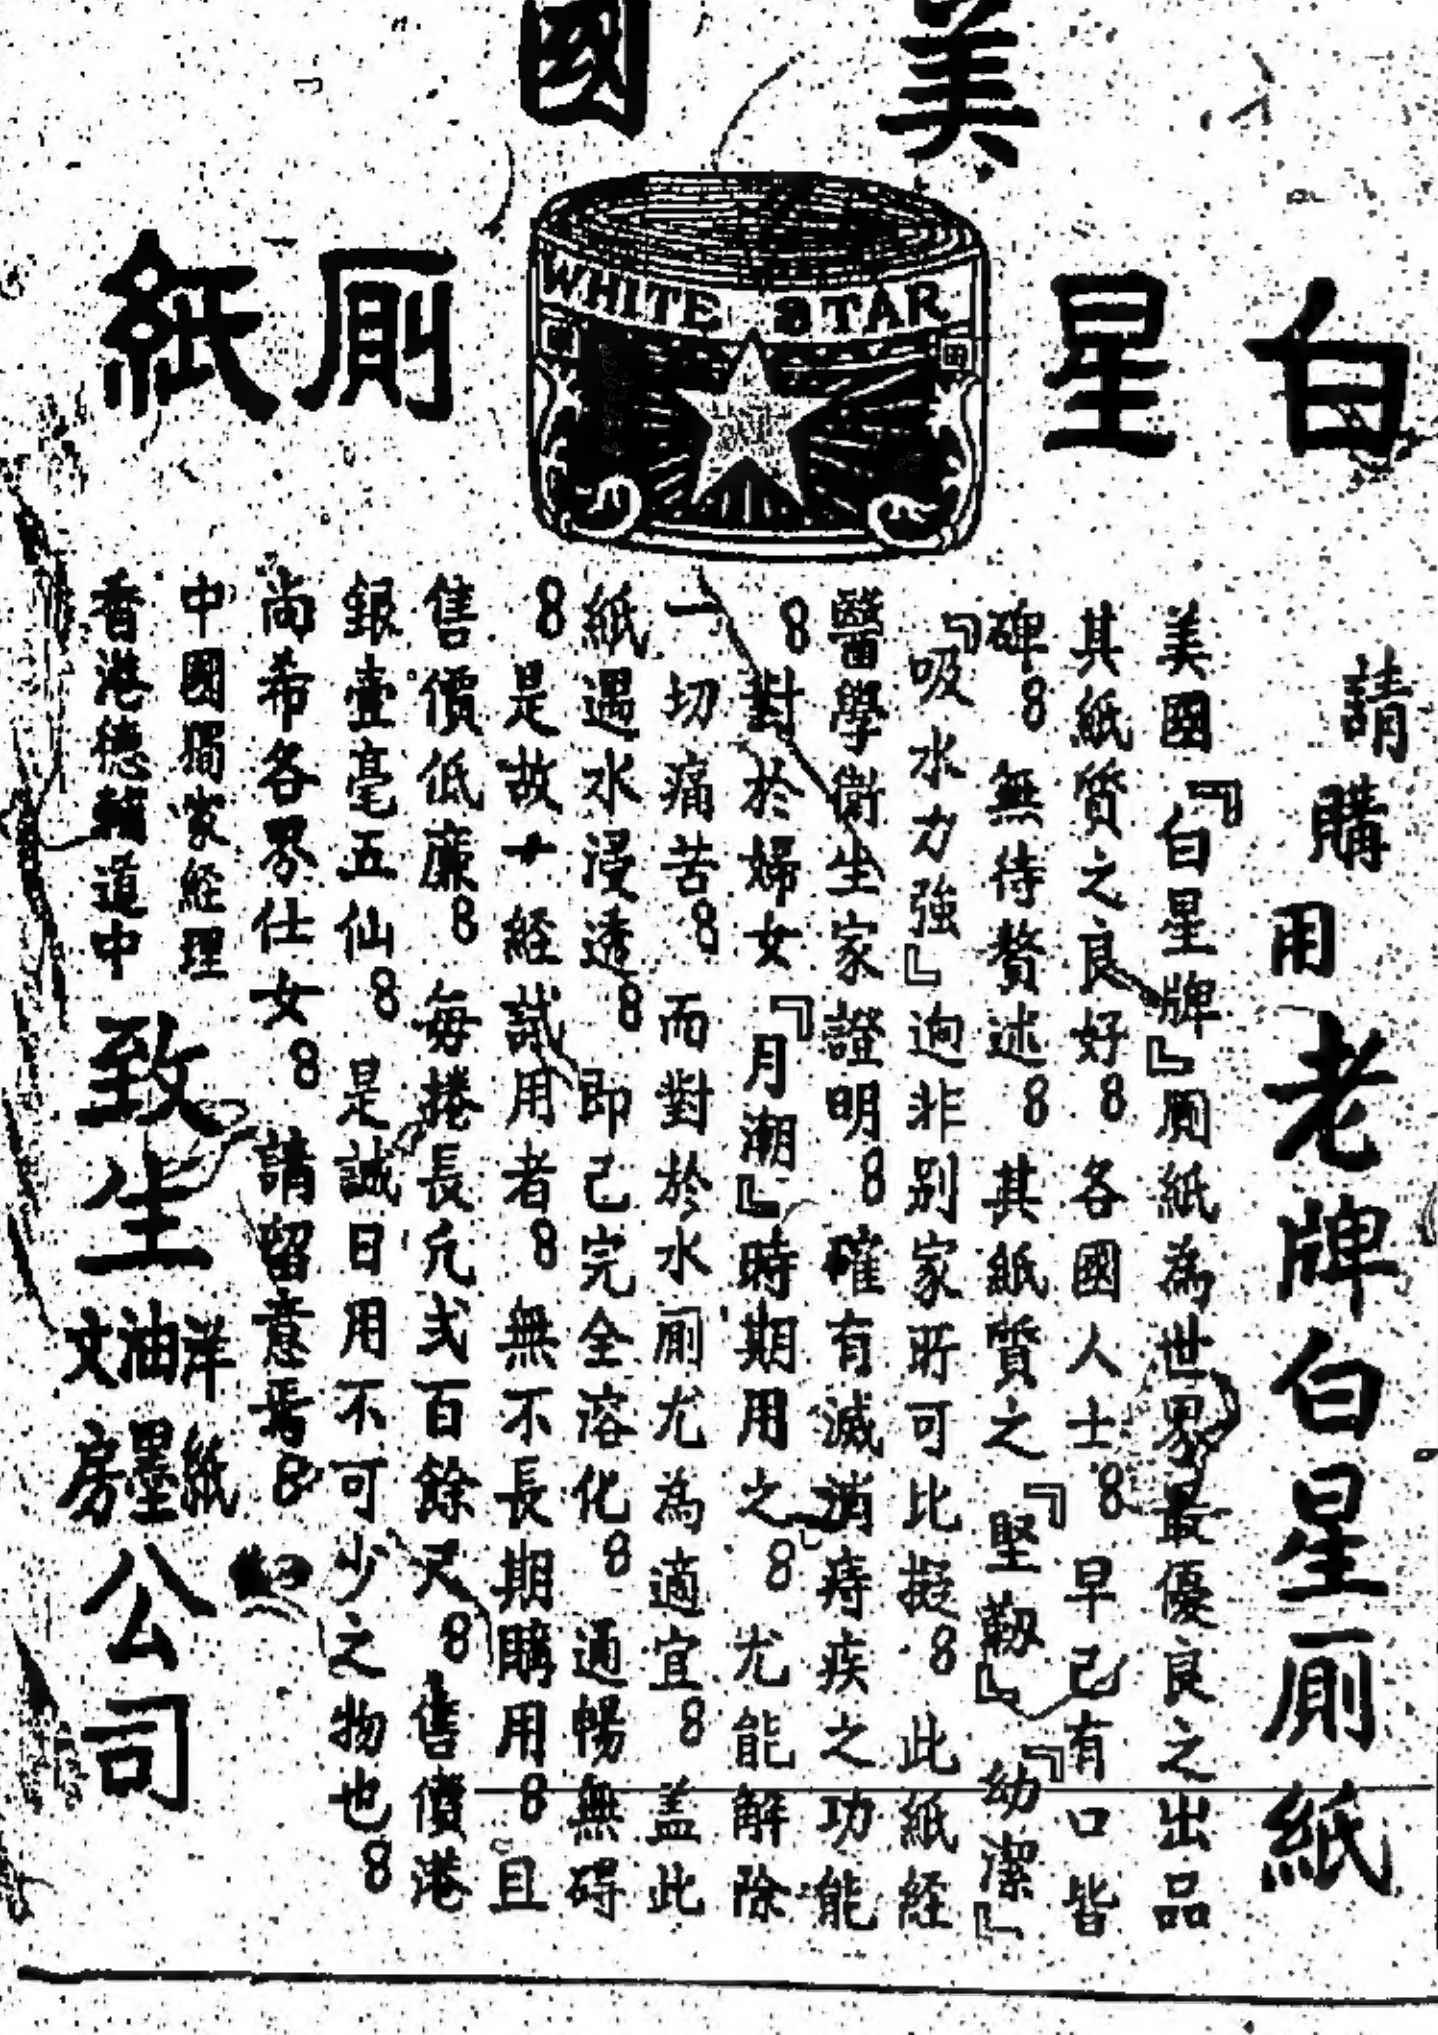 美國
白星廁紙
WHITE STAR
請購用老牌白星廁紙
美國『白星牌』廁紙為世界最優良之出品
其紙質之良好8各國人士8早己有口皆
碑8無待贅述8其紙質之『堅韌』『幼潔』
『吸水力強』迥非別家所可比擬8此紙経
醫學衛生家證明8確有滅消痔疾之功能
8對於婦女『月潮』時期用之8尤能解除
一切痛苦8而對於水廁尤為適宜8盖此
紙遇水浸透8即己完全溶化8通暢無碍
8是故一経試用者8無不長期購用8且
售價低廉8每捲長凢弍百餘尺8售價港
銀壹毫五仙8是誠日用不可少之物也8
尚希各界仕女8請留意焉8
中國獨家経理
香港德輔道中
致生
洋紙
油墨
文房
公司